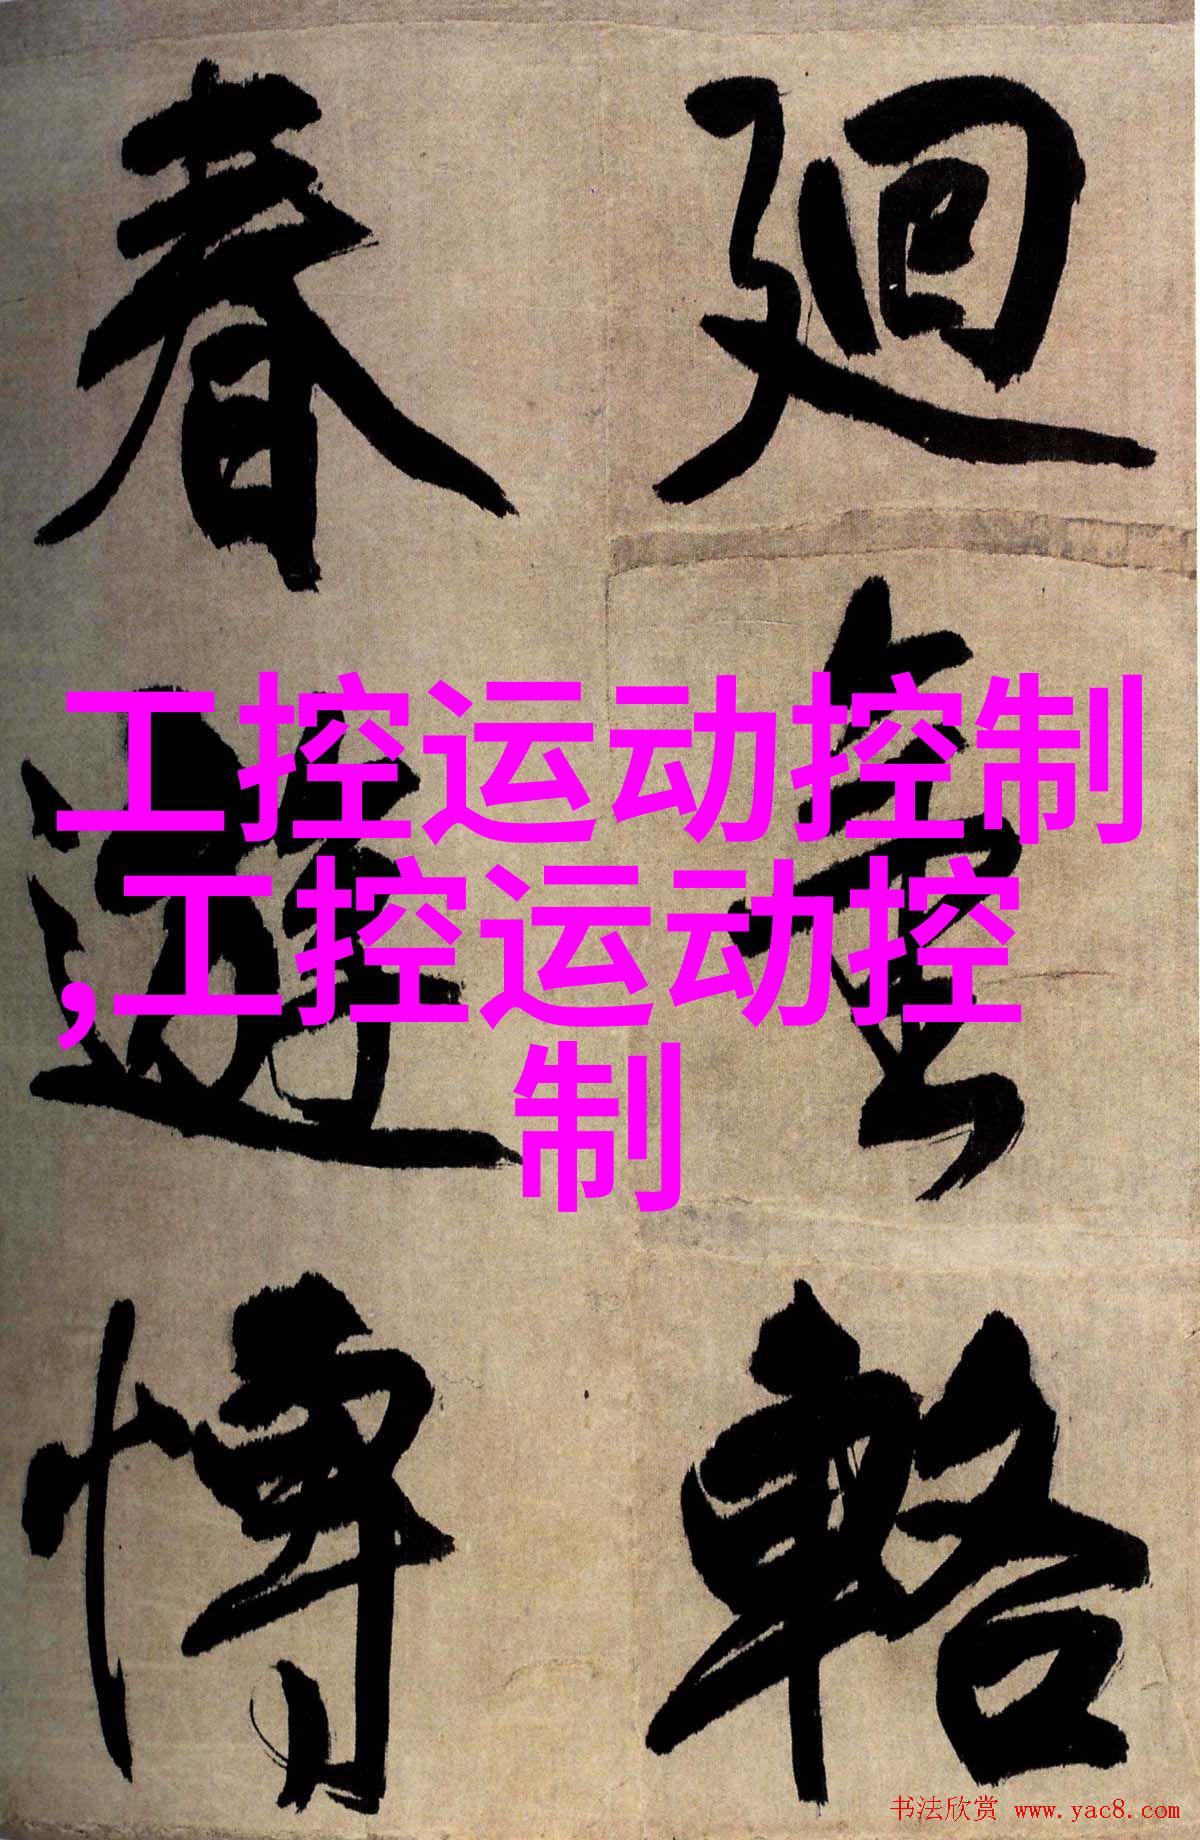 廻輅
春遊
工控运动控制
,工控运动控
制
书法欣赏 www.yac8.com